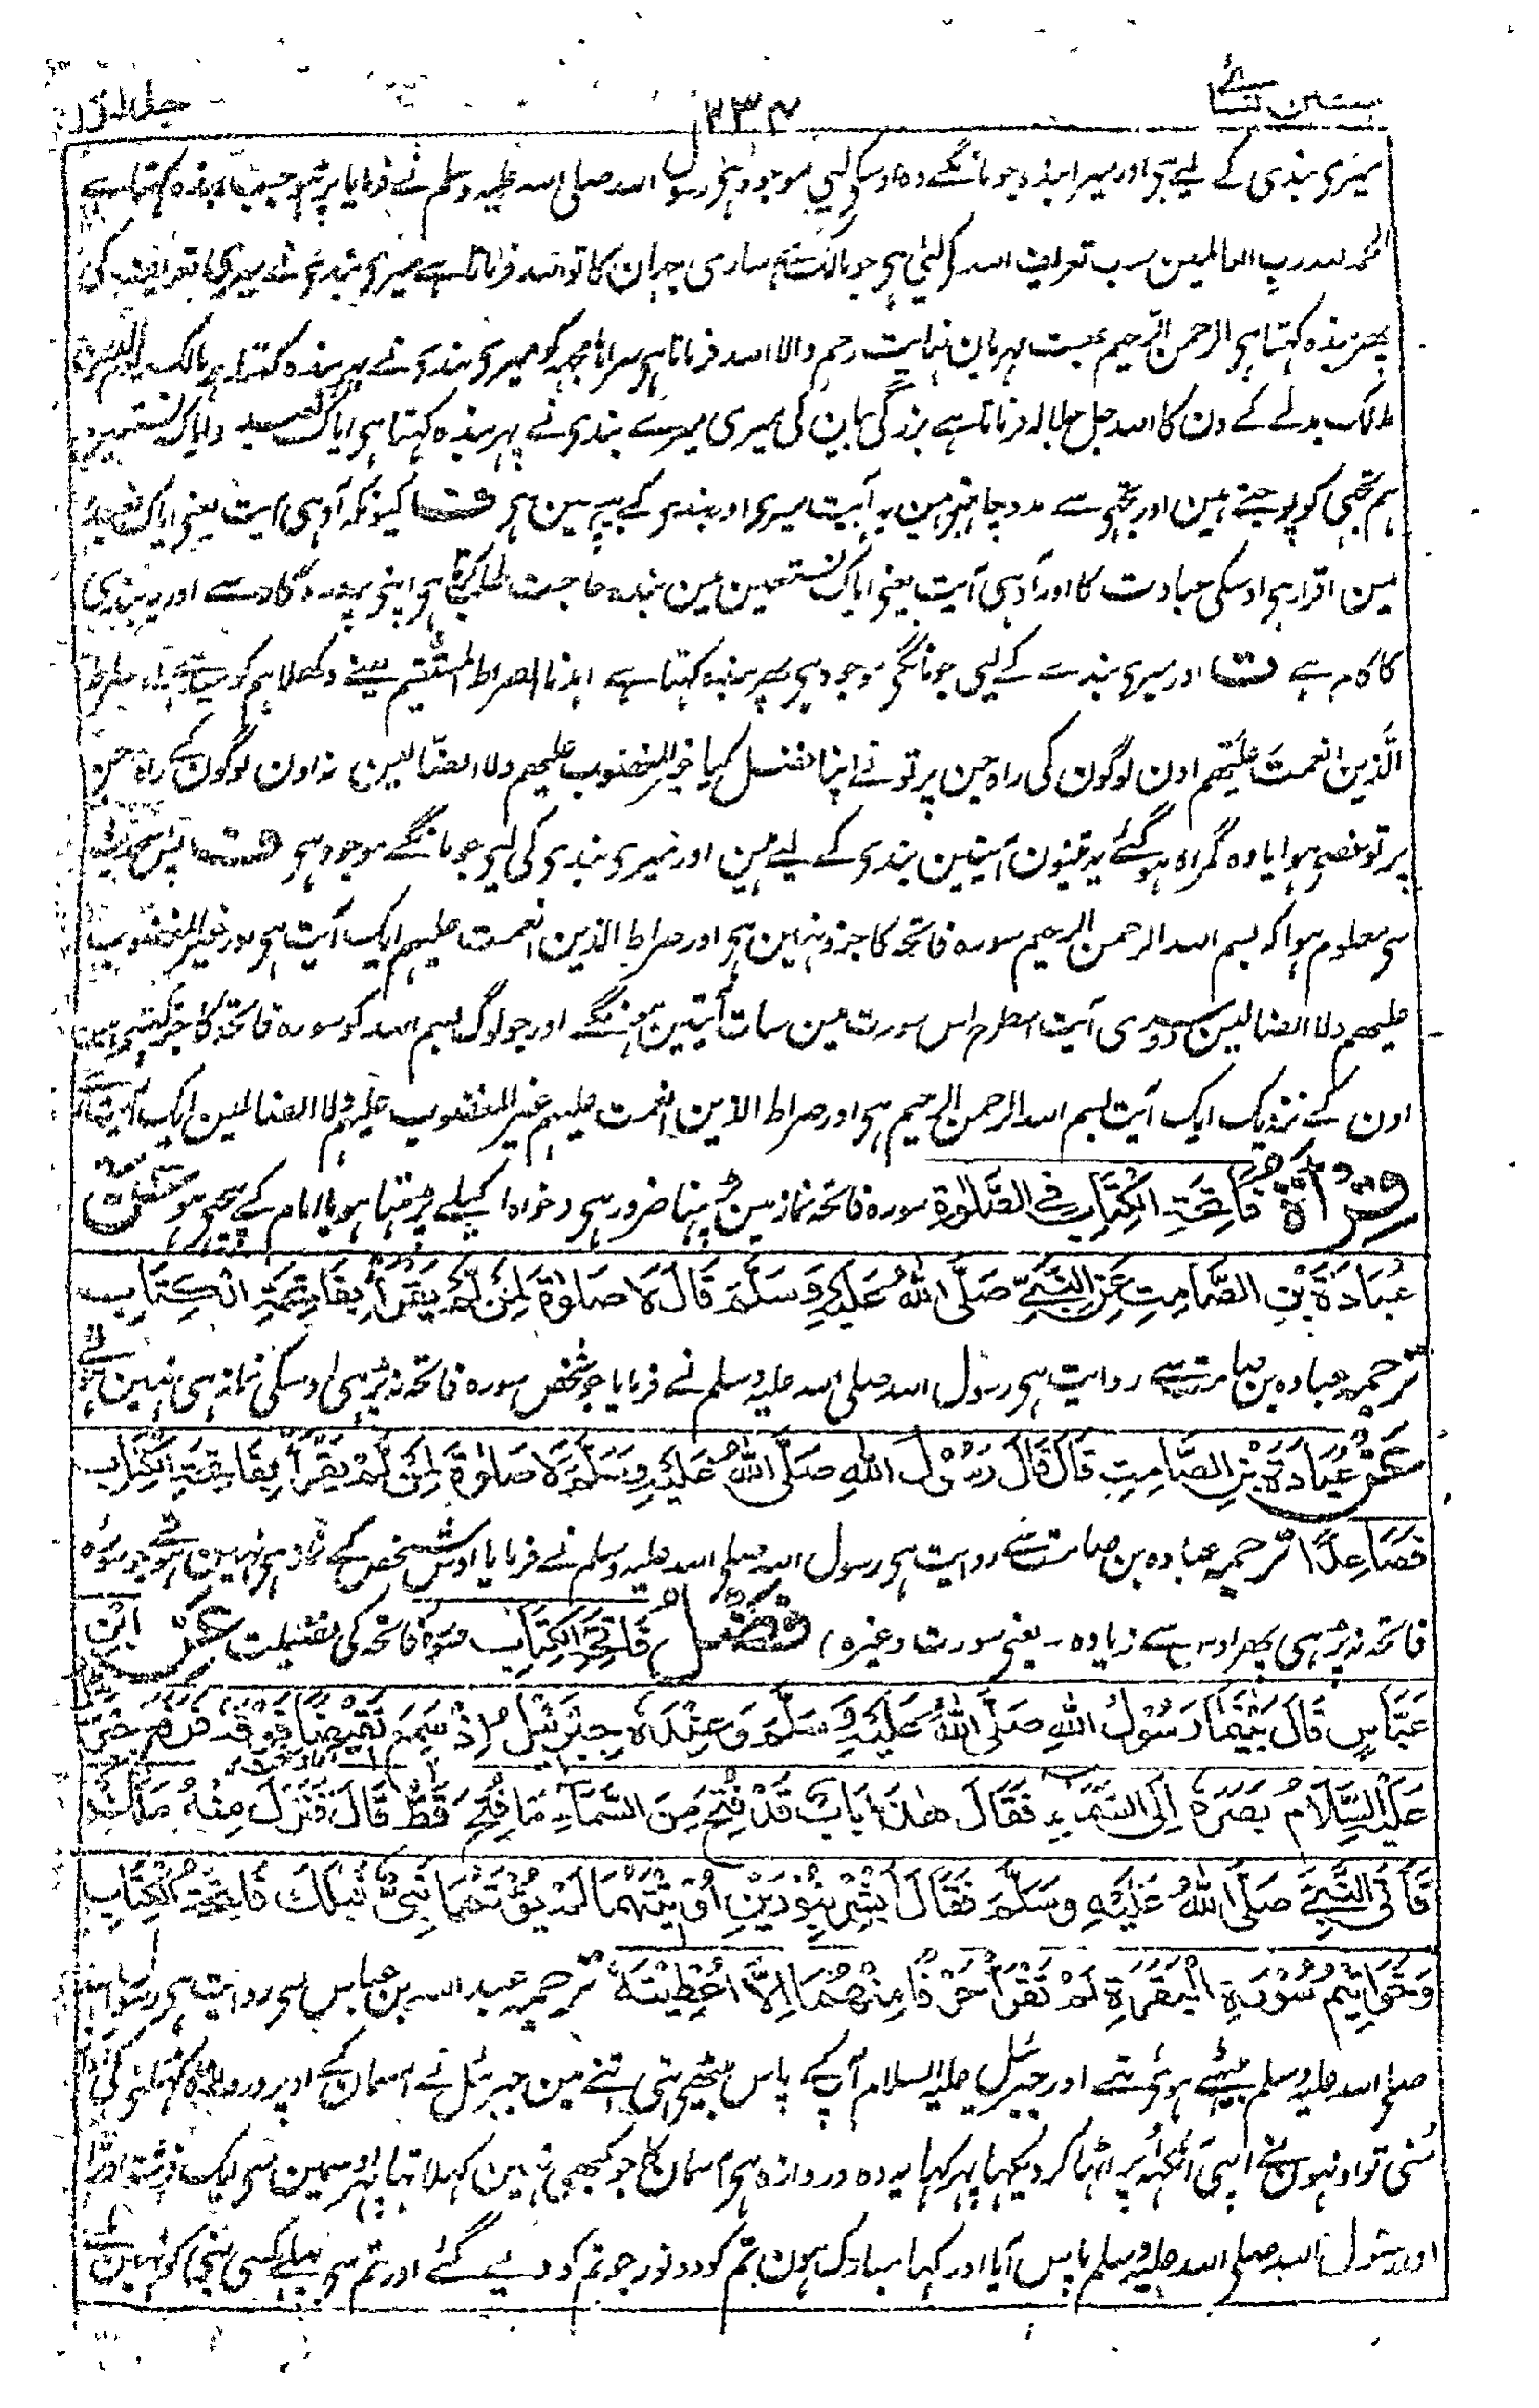 سنن نسائی
۲۳۴
جلد اول
میری بندی کے لیے ہی اور میرا بندہ جو مانگے وہ اوسکی لیے موجود ہی رسول اللہ صلی اللہ علیہ وسلم نے فرمایا جب بندہ کہتا ہے
الحمد للہ رب العالمین سب تعریف اللہ کو لئی ہی جو مالک ہے ساری جہان کا تو اللہ فرماتا ہے میری بندی نے میری تعریف کی
پھر بندہ کہتا ہی الرحمن الرحیم بہت مہربان نہایت رحم والا اللہ فرماتا ہی سراہا مجہہ کو میری بندی نے پہر بندہ کہتا ہی مالک یوم الدین
مالک بدلے کے دن کا اللہ جل جلالہ فرماتا ہے بزرگی بیان کی میری میرے بندی نے پہر بندہ کہتا ہی ایاک نعبد وایاک نستعین
ہم تجہی کو پوجتے ہین اور تجہی سے مدد چاہتی ہین یہ آیت میری اور بندی کے بیچ مین ہی ف کیونکہ آدہی آیت یعنی ایاک نعبد
مین اقرار ہی اوسکی عبادت کا اور آدہی آیت یعنی ایاک نستعین مین بندہ حاجت طلب کرتا ہی اپنی پروردگار سے اور یہ بندی
کا کام ہے ت اور میری بندے کے لیی جو مانگی موجود ہی پہر بندہ کہتا ہے اہدنا الصراط المستقیم یعنے دکھلا ہم کو سیدہی راہ صراط
الَّذین انعمتَ علیہم اون لوگون کی راہ جن پر تو نے اپنا فضل کیا غیر المغضوب علیہم ولا الضالین نہ اون لوگون کے راہ جن
پر تو غصی ہوا یا وہ گمراہ ہو گئے یہ تینون آیتین بندی کے لیے ہین اور میری بندی کی لیی جو مانگے موجود ہی ف اس حدیث
سی معلوم ہوا کہ بسم اللہ الرحمن الرحیم سورہ فاتحہ کا جزو نہین ہی اور صراط الذین انعمت علیہم ایک آیت ہی اور غیر المغضوب
علیہم ولا الضالین دوسری آیت اسطرح اس سورت مین سات آیتین ہونگے اور جو لوگ بسم اللہ کو سورہ فاتحہ کا جز کہتی ہین
اون کے نزدیک ایک آیت بسم اللہ الرحمن الرحیم ہی اور صراط الذین انعمت علیہم غیر المغضوب علیہم ولا الضالین ایک آیت
قِرَاءَةُ فَاتِحَةِ الْكِتَابِ فِي الصَّلٰوةِ سورہ فاتحہ نماز مین پڑہنا ضرور ہی (خواہ اکیلے پڑہتا ہو یا امام کے پیچہی ہو عَنْ
عُبَادَةَ بْنِ الصَّامِتِ عَنِ النَّبِيِّ صَلَّى اللّٰهُ عَلَيْهِ وَسَلَّمَ قَالَ لَا صَلٰوةَ لِمَنْ لَّمْ يَقْرَأْ بِفَاتِحَةِ الْكِتَابِ
ترجمہ عبادہ بن صامت سے روایت ہی رسول اللہ صلی اللہ علیہ وسلم نے فرمایا جو شخص سورہ فاتحہ نہ پڑہی اوسکی نماز ہی نہین ہے
عَنْ عُبَادَةَ بْنِ الصَّامِتِ قَالَ قَالَ رَسُوْلُ اللّٰهِ صَلَّى اللّٰهُ عَلَيْهِ وَسَلَّمَ لَا صَلٰوةَ لِمَنْ لَّمْ يَقْرَأْ بِفَاتِحَةِ الْكِتَابِ
فَصَاعِدًا ترجمہ عبادہ بن صامت سے روایت ہی رسول اللہ صلی اللہ علیہ وسلم نے فرمایا اوس شخص کے نماز ہی نہین ہے جو سورہ
فاتحہ نہ پڑہی پھر اوس سے زیادہ - یعنی سورت وغیرہ) فَضْلُ فَاتِحَةِ الْكِتَابِ سورہ فاتحہ کی فضیلت عَنْ ابْنِ
عَبَّاسٍ قَالَ بَيْنَمَا رَسُوْلُ اللّٰهِ صَلَّى اللّٰهُ عَلَيْهِ وَسَلَّمَ وَعِنْدَهٗ جِبْرَئِيْلُ اِذْ سَمِعَ نَقِيْضًا فَوْقَهٗ فَرَفَعَ جِبْرَئِيْلُ
عَلَيْهِ السَّلَامُ بَصَرَهٗ اِلَى السَّمَاءِ فَقَالَ هٰذَا بَابٌ قَدْ فُتِحَ مِنَ السَّمَاءِ مَا فُتِحَ قَطُّ قَالَ فَنَزَلَ مِنْهُ مَلَكٌ
فَاَتَى النَّبِيَّ صَلَّى اللّٰهُ عَلَيْهِ وَسَلَّمَ فَقَالَ اَبْشِرْ بِنُوْرَيْنِ اُوْتِيْتَهُمَا لَمْ يُؤْتَهُمَا نَبِيٌّ قَبْلَكَ فَاتِحَةِ الْكِتَابِ
وَخَوَاتِيْمِ سُوْرَةِ الْبَقَرَةِ لَمْ تَقْرَأْ حَرْفًا مِنْهُمَا اِلَّا اُعْطِيْتَهٗ ترجمہ عبد اللہ بن عباس سی روایت ہی رسول اللہ
صلی اللہ علیہ وسلم بیٹھے ہوئی تہے اور جبرئیل علیہ السلام آپ کے پاس بیٹھی تہی اتنے مین جبرئیل نے آسمان کے اوپر دروازہ کھلنی کی
سُنی تو اونہون نے اپنی آنکہہ اوپر اٹہا کر دیکہا پہر کہا یہ وہ دروازہ ہی آسمان کا جو کبھی نہین کہلا تہا پہر اوسمین سی ایک فرشتہ اترا
اور رسول اللہ صلی اللہ علیہ وسلم پاس آیا اور کہا مبارک ہون تم کو دو نور جو تم کو دیے گئے اور تم سی پہلے کسی نبی کو نہین